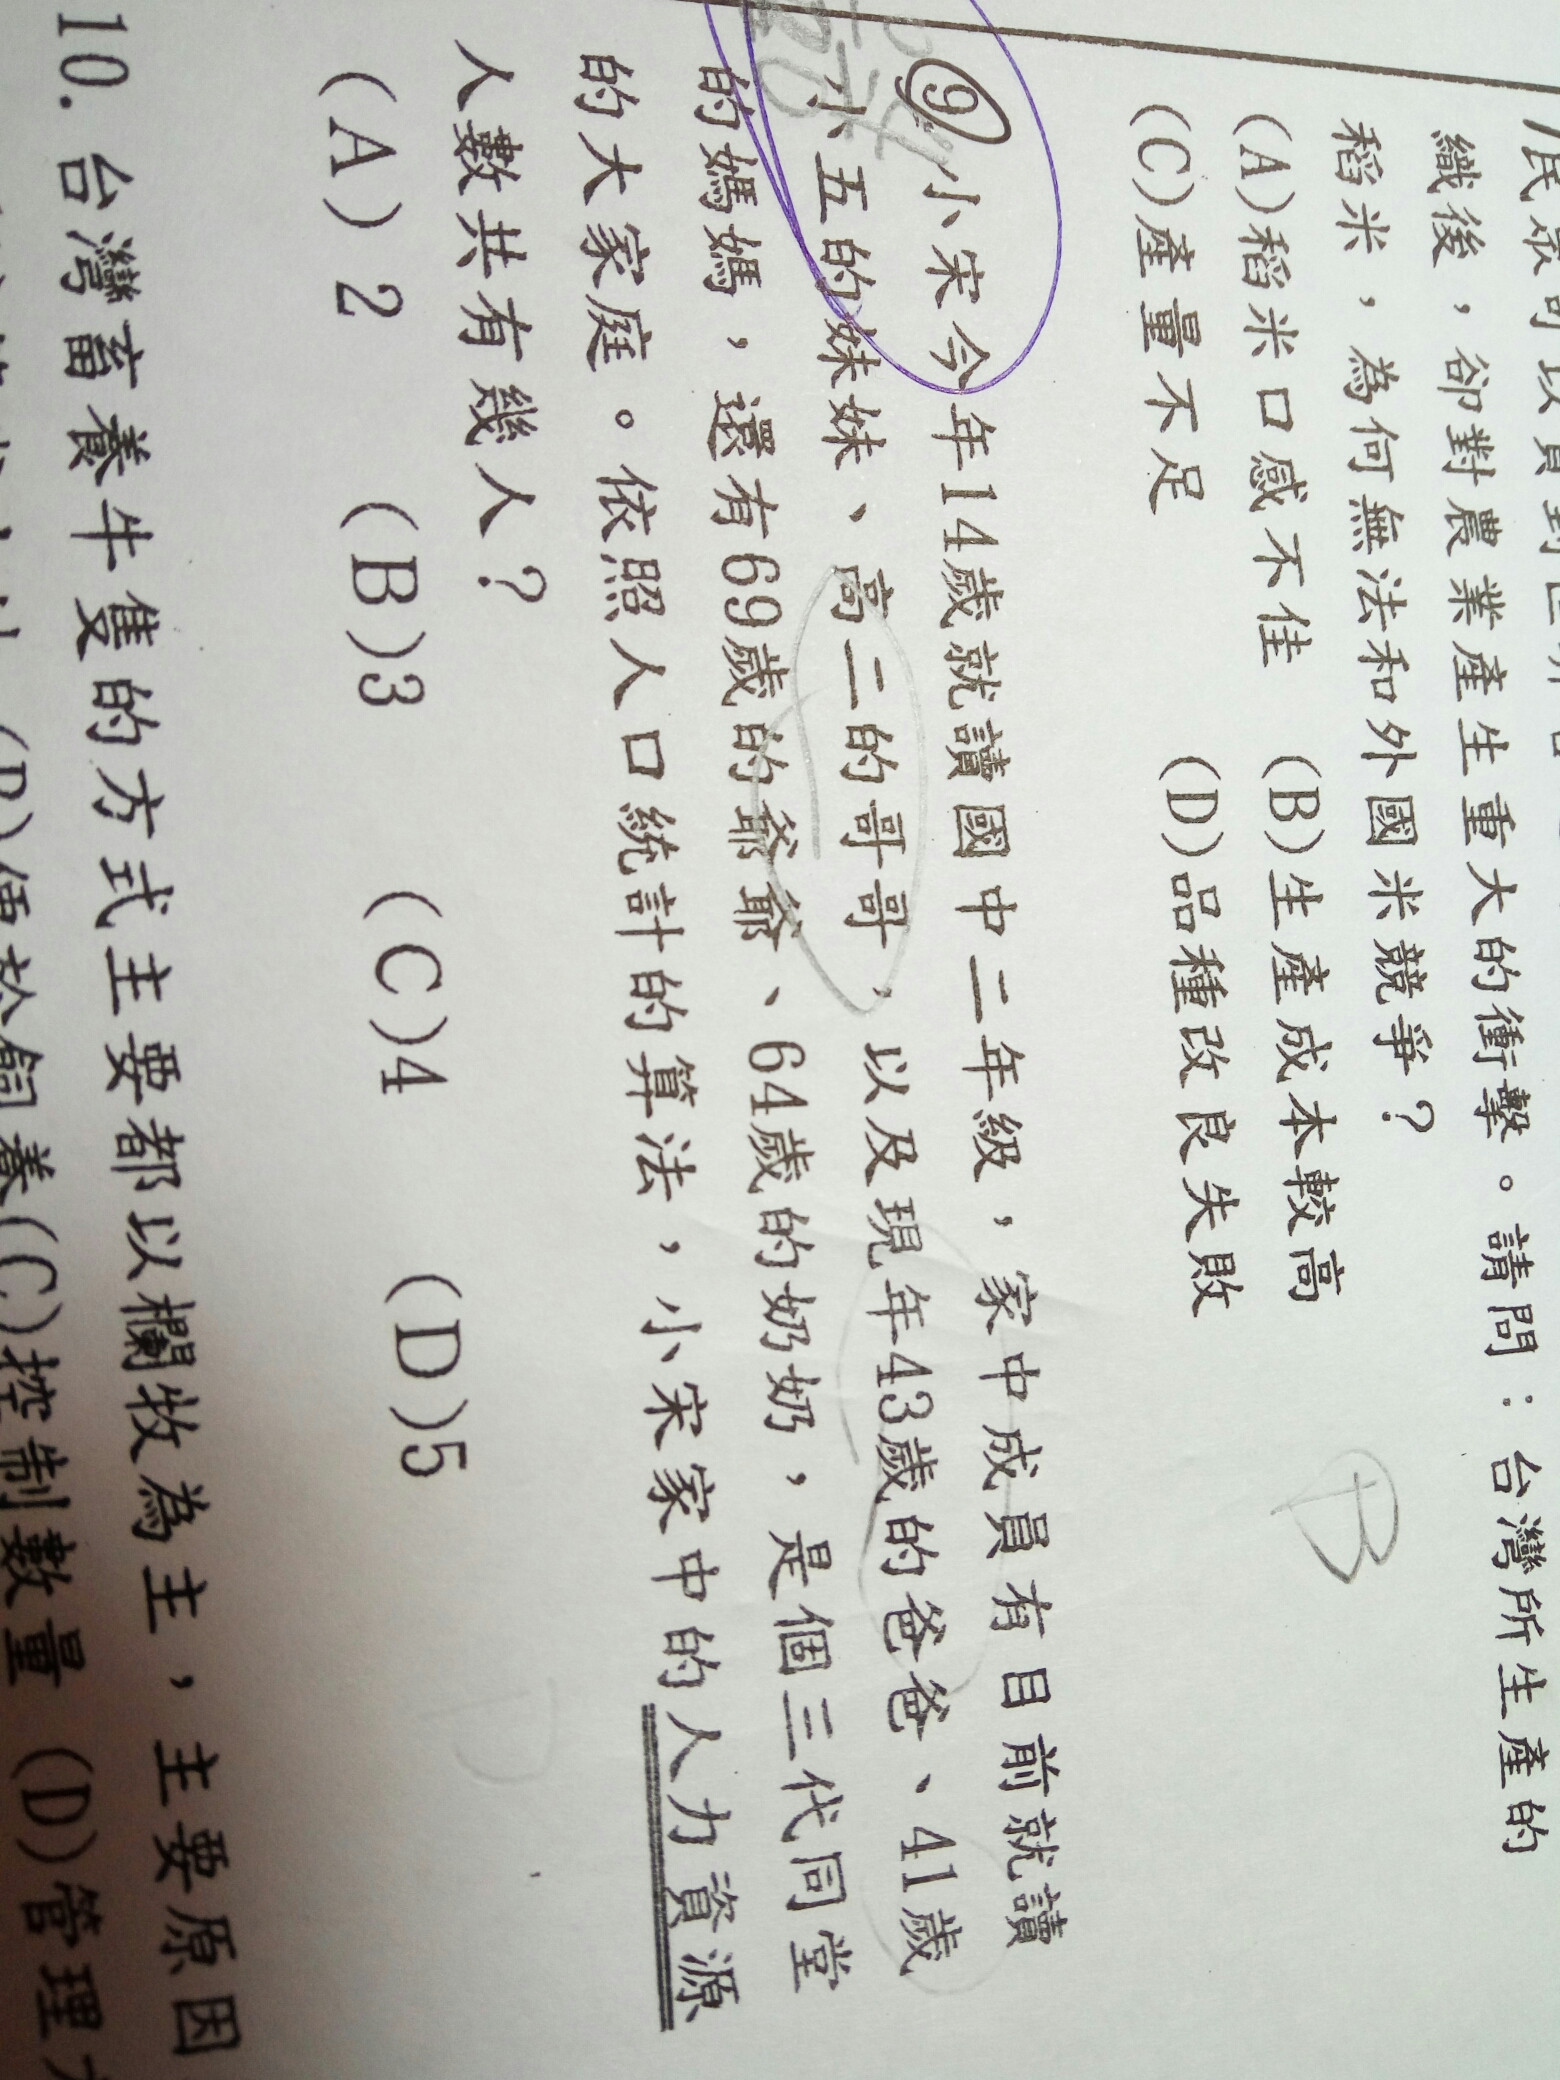 織後，卻對農業產生重大的衝擊。請問：台灣所生產的
稻米，為何無法和外國米競爭？
(A)稻米口感不佳 (B)生產成本較高
(C)產量不足 (D)品種改良失敗
B
9 小宋今年14歲就讀國中二年級，家中成員有目前就讀
小五的妹妹、高二的哥哥，以及現年43歲的爸爸、41歲
的媽媽，還有69歲的爺爺、64歲的奶奶，是個三代同堂
的大家庭。依照人口統計的算法，小宋家中的人力資源
人數共有幾人？
D
(A) 2 (B)3 (C)4 (D)5
10. 台灣畜養牛隻的方式主要都以欄牧為主，主要原因
(C)控制數量 (D)管理